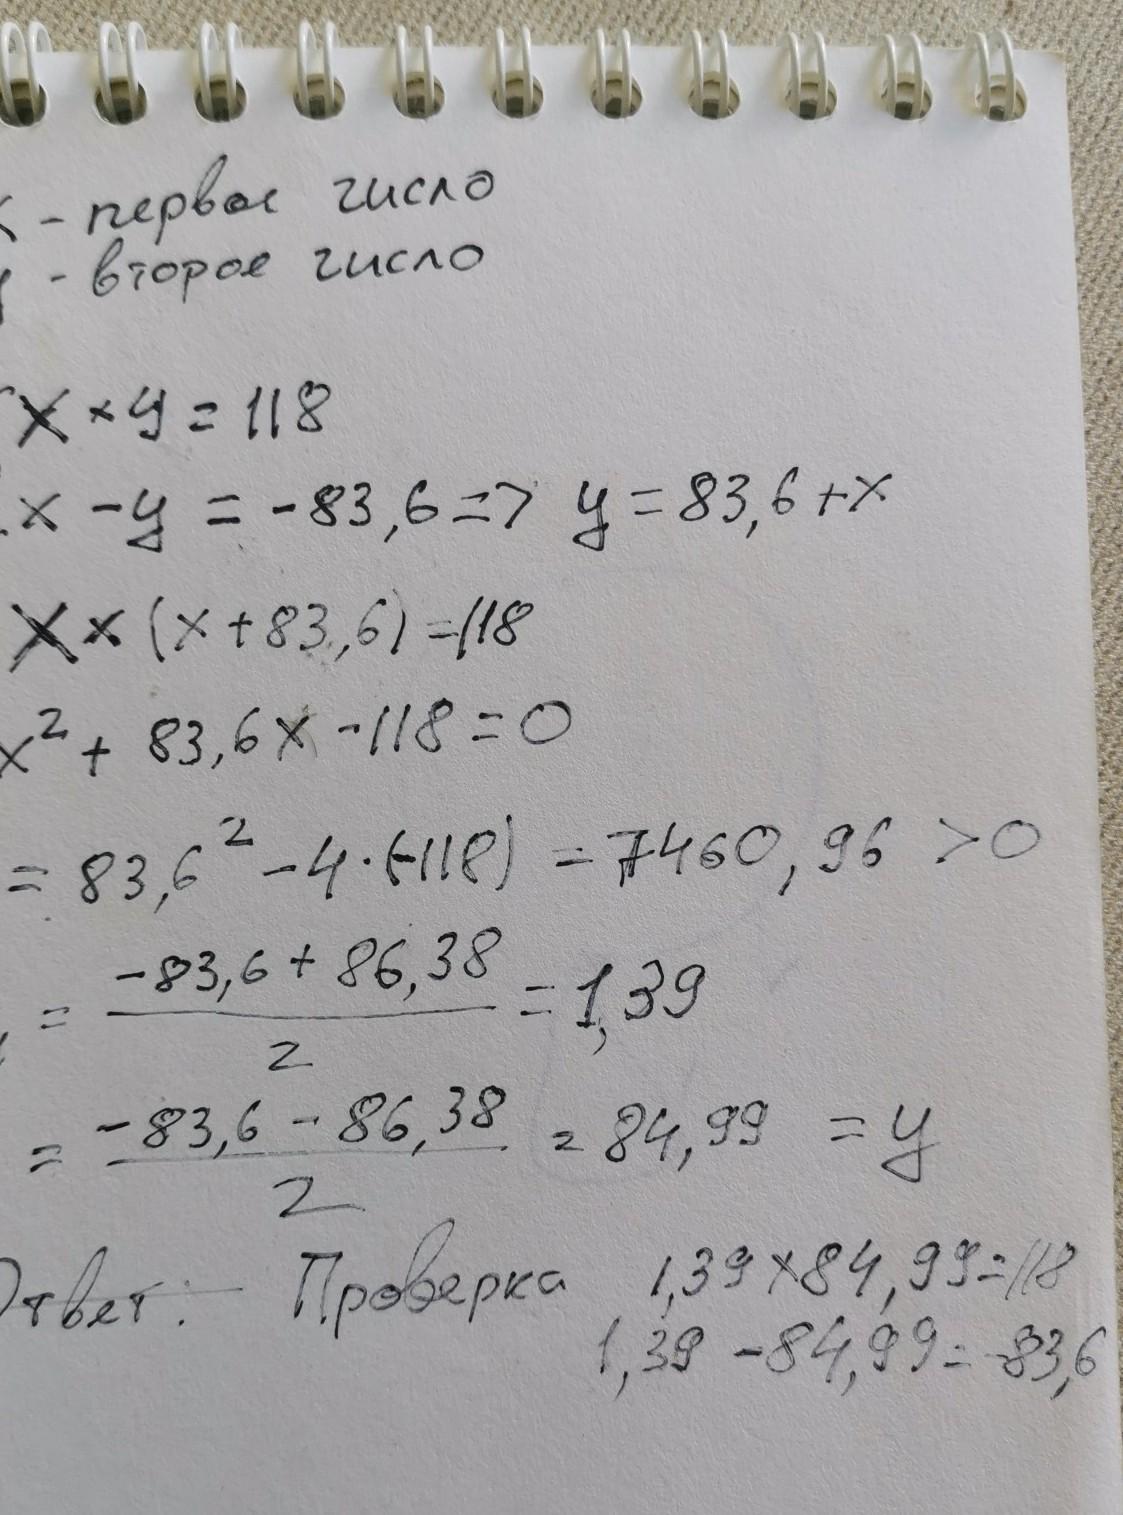 x - первое число
y - второе число
x × y = 118
x - y = -83,6 => y = 83,6 + x
x × (x + 83,6) = 118
x² + 83,6x - 118 = 0
= 83,6² - 4·(-118) = 7460,96 > 0
= (-83,6 + 86,38) / 2 = 1,39
= (-83,6 - 86,38) / 2 = 84,99 = y
Ответ: Проверка 1,39 × 84,99 = 118
1,39 - 84,99 = -83,6